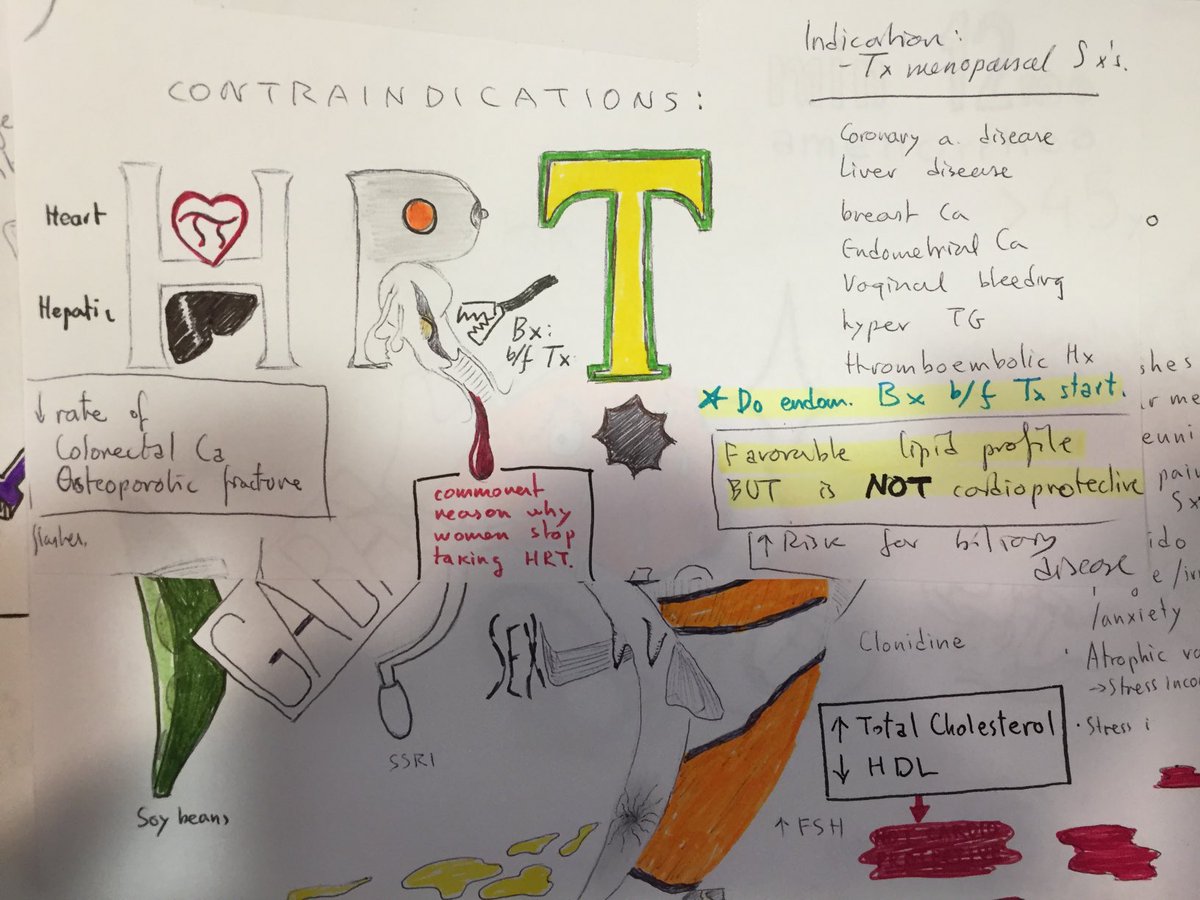 Indication:
- Tx menopausal Sx's.
CONTRAINDICATIONS:
Coronary a. disease
Liver disease
breast Ca
Endometrial Ca
Vaginal bleeding
hyper TG
thromboembolic Hx
* Do endom. Bx b/f Tx start.
Favorable lipid profile
BUT is NOT cardioprotective
↑ Risk for biliary
disease
HRT
Heart
Hepatic
Bx:
b/f Tx
↓ rate of
Colorectal Ca
Osteoporotic fracture
commonest
reason why
women stop
taking HRT.
flashes.
GAD
SEX
SSRI
Soy beans
Clonidine
↑ Total Cholesterol
↓ HDL
↑ FSH
/anxiety
Atrophic
→ Stress
Stress i